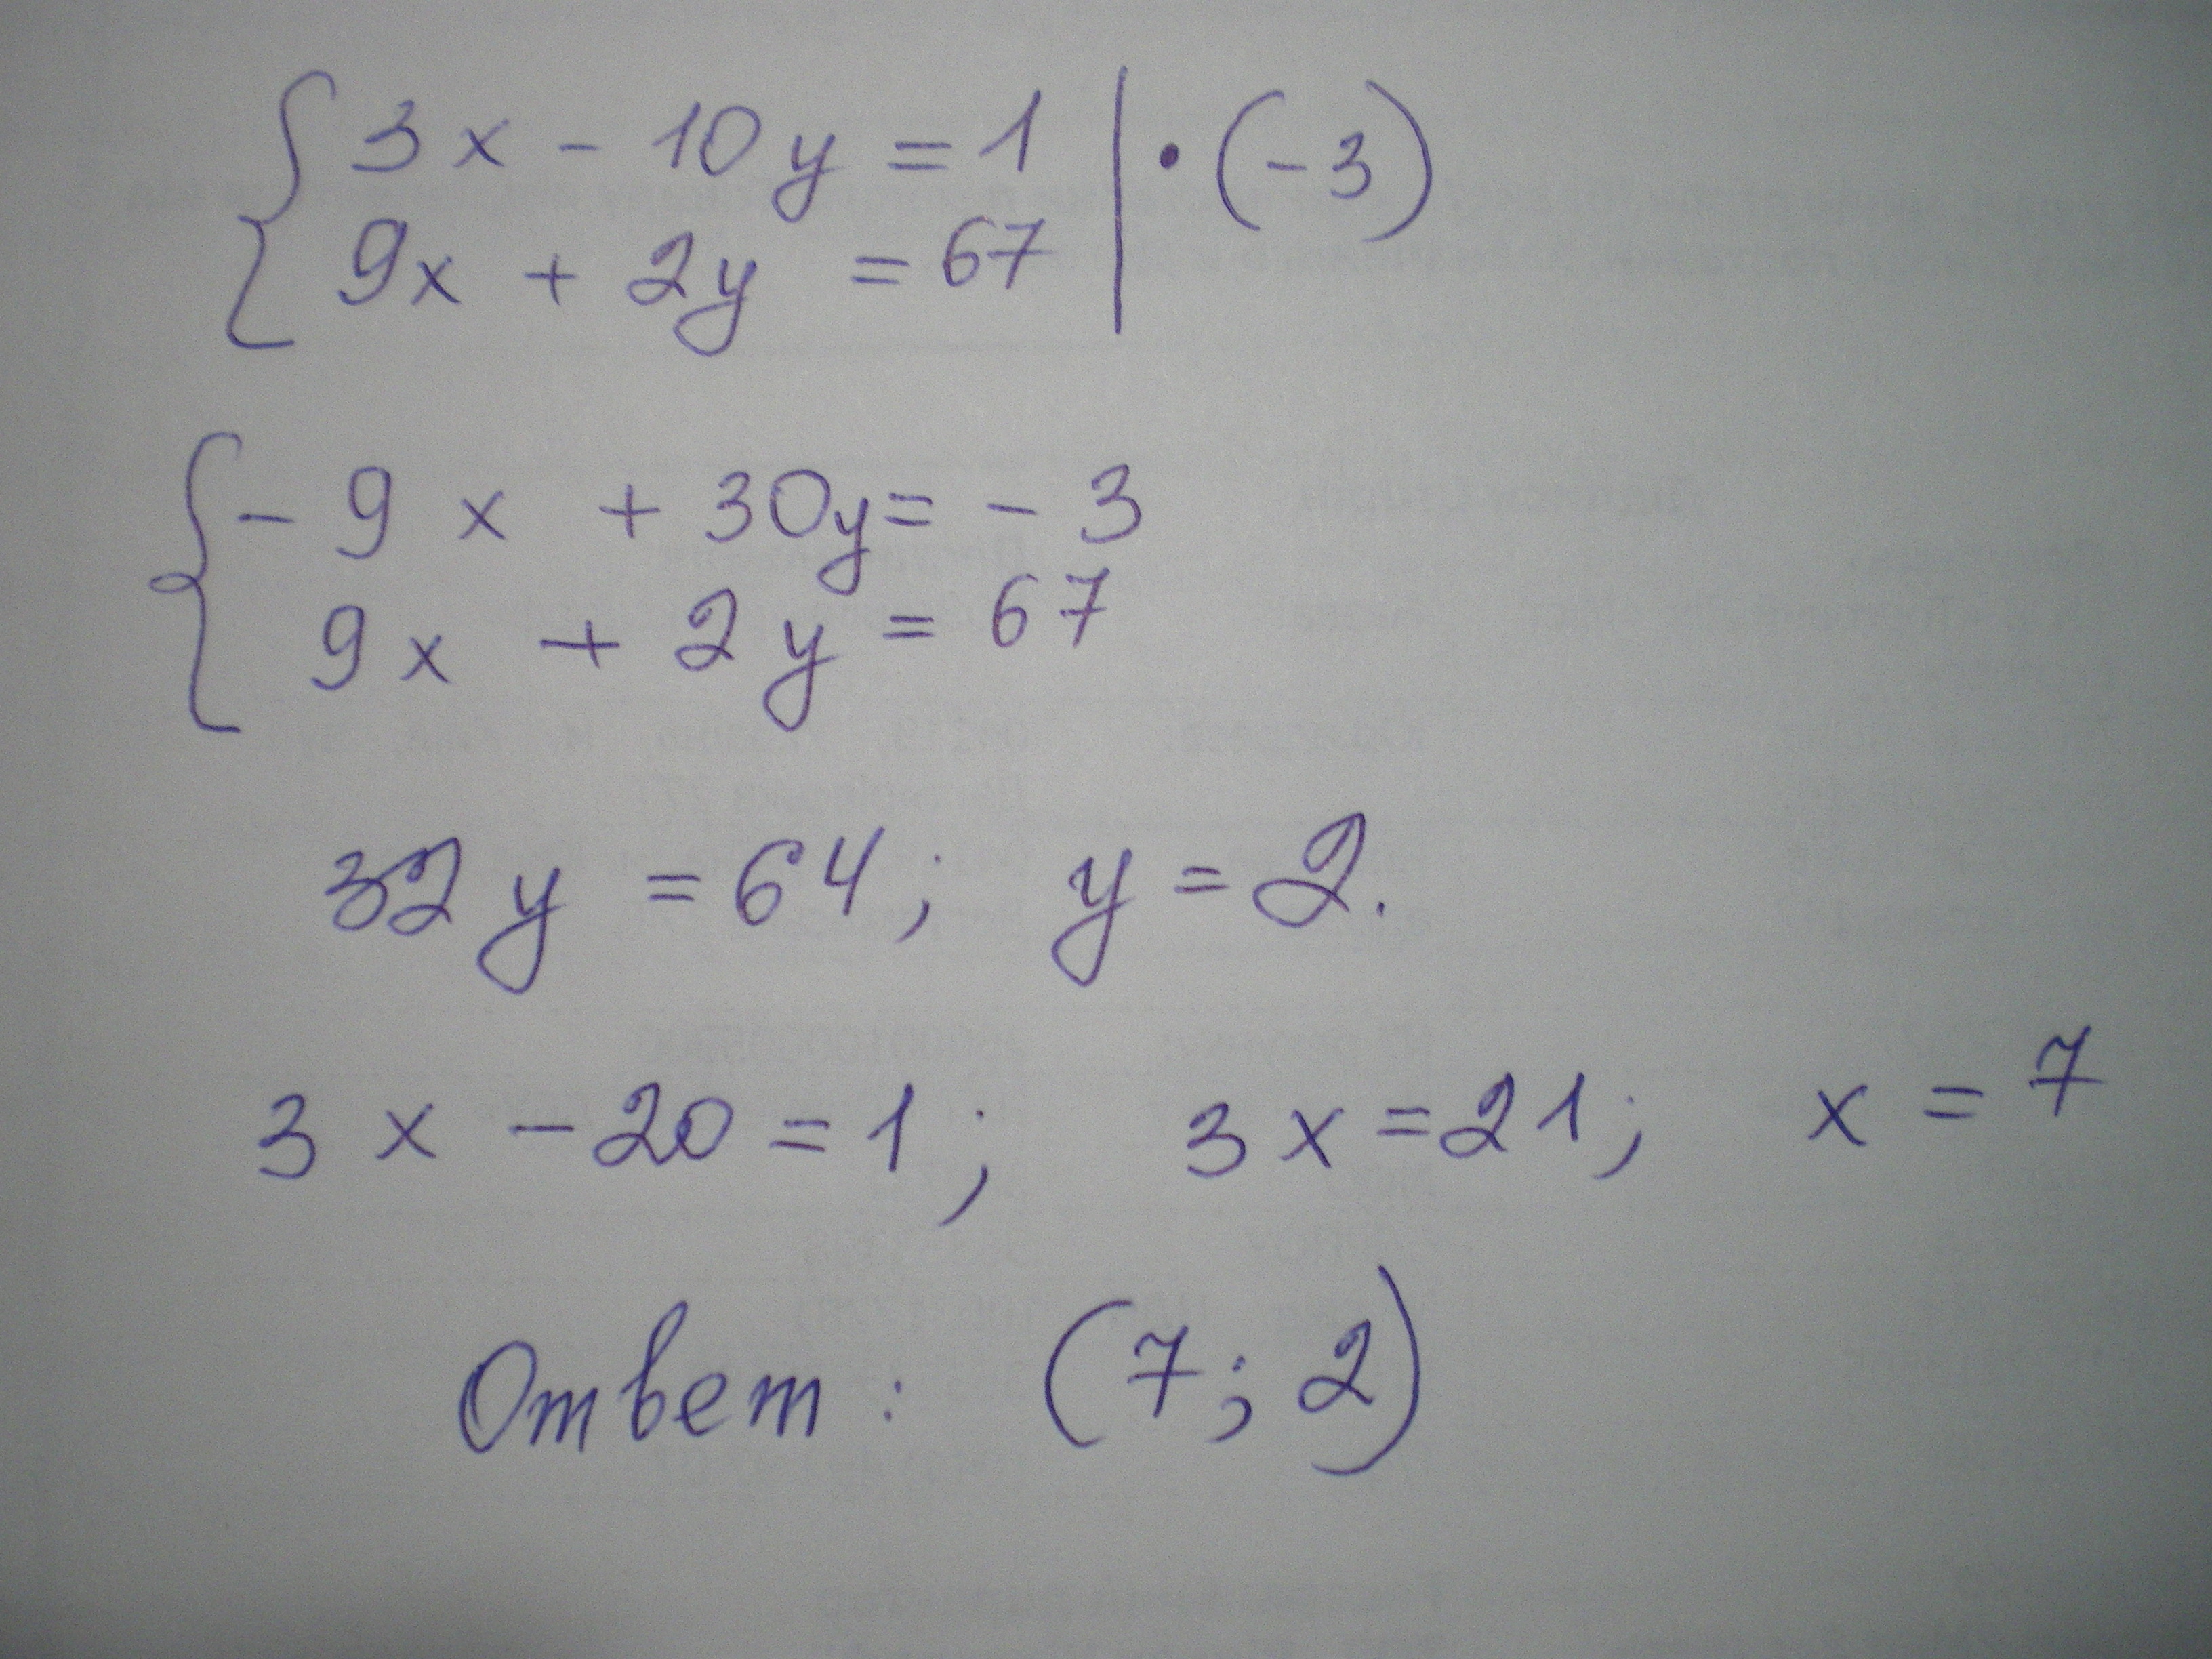 3x - 10y = 1 | · (-3)
9x + 2y = 67
- 9x + 30y = - 3
9x + 2y = 67
32y = 64; y = 2.
3x - 20 = 1; 3x = 21; x = 7
Ответ: (7; 2)